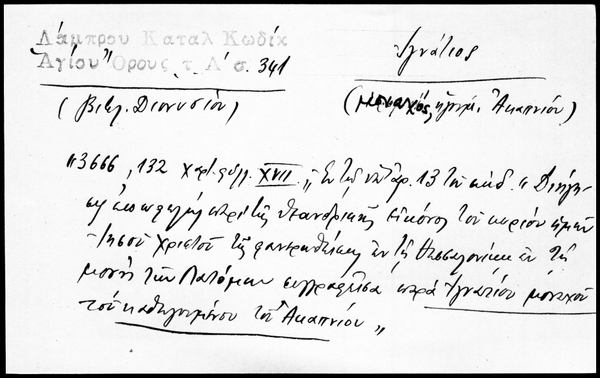 Λάμπρου Καταλ Κωδίκ
Ἁγίου Ὄρους τ. Α΄ σ. 341
Ἰγνάτιος
(Βιβλ. Διονυσίου)
(μοναχός, ἡγουμ. Ἀκαπνίου)
"3666, 132 χαρτ. φύλλ. XVII „ Ἐν τῷ ὑπ' ἀρ. 13 τοῦ κώδ. "Διήγη-
σις ἐπωφελὴς περὶ τῆς θεανδρικῆς εἰκόνος τοῦ κυρίου ἡμῶν
Ἰησοῦ Χριστοῦ τῆς φανερωθείσης ἐν τῇ Θεσσαλονίκῃ ἐν τῇ
μονῇ τῶν Λατόμων συγγραφεῖσα παρὰ Ἰγνατίου μοναχοῦ
τοῦ καθηγουμένου τοῦ Ἀκαπνίου „